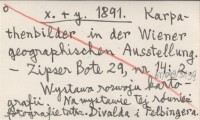 x. + y. 1891. Karpa-
thenbilder in der Wiener
geographischen Ausstellung.
– Zipser Bote 29, nr 14: 3.
Wystawa rozwoju karto-
grafii. Na wystawie tej również
fotografie tatr. Divalda i Felbingera.